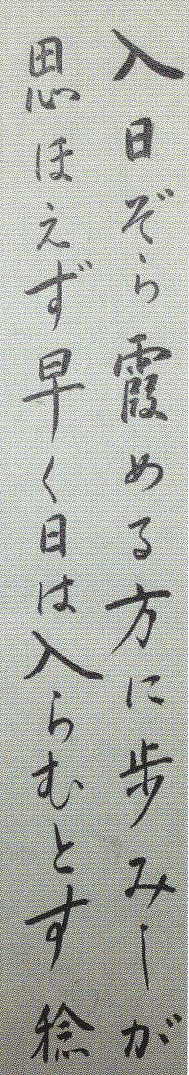 入日ぞら霞める方に歩みしが
思ほえず早く日は入らむとす 稔